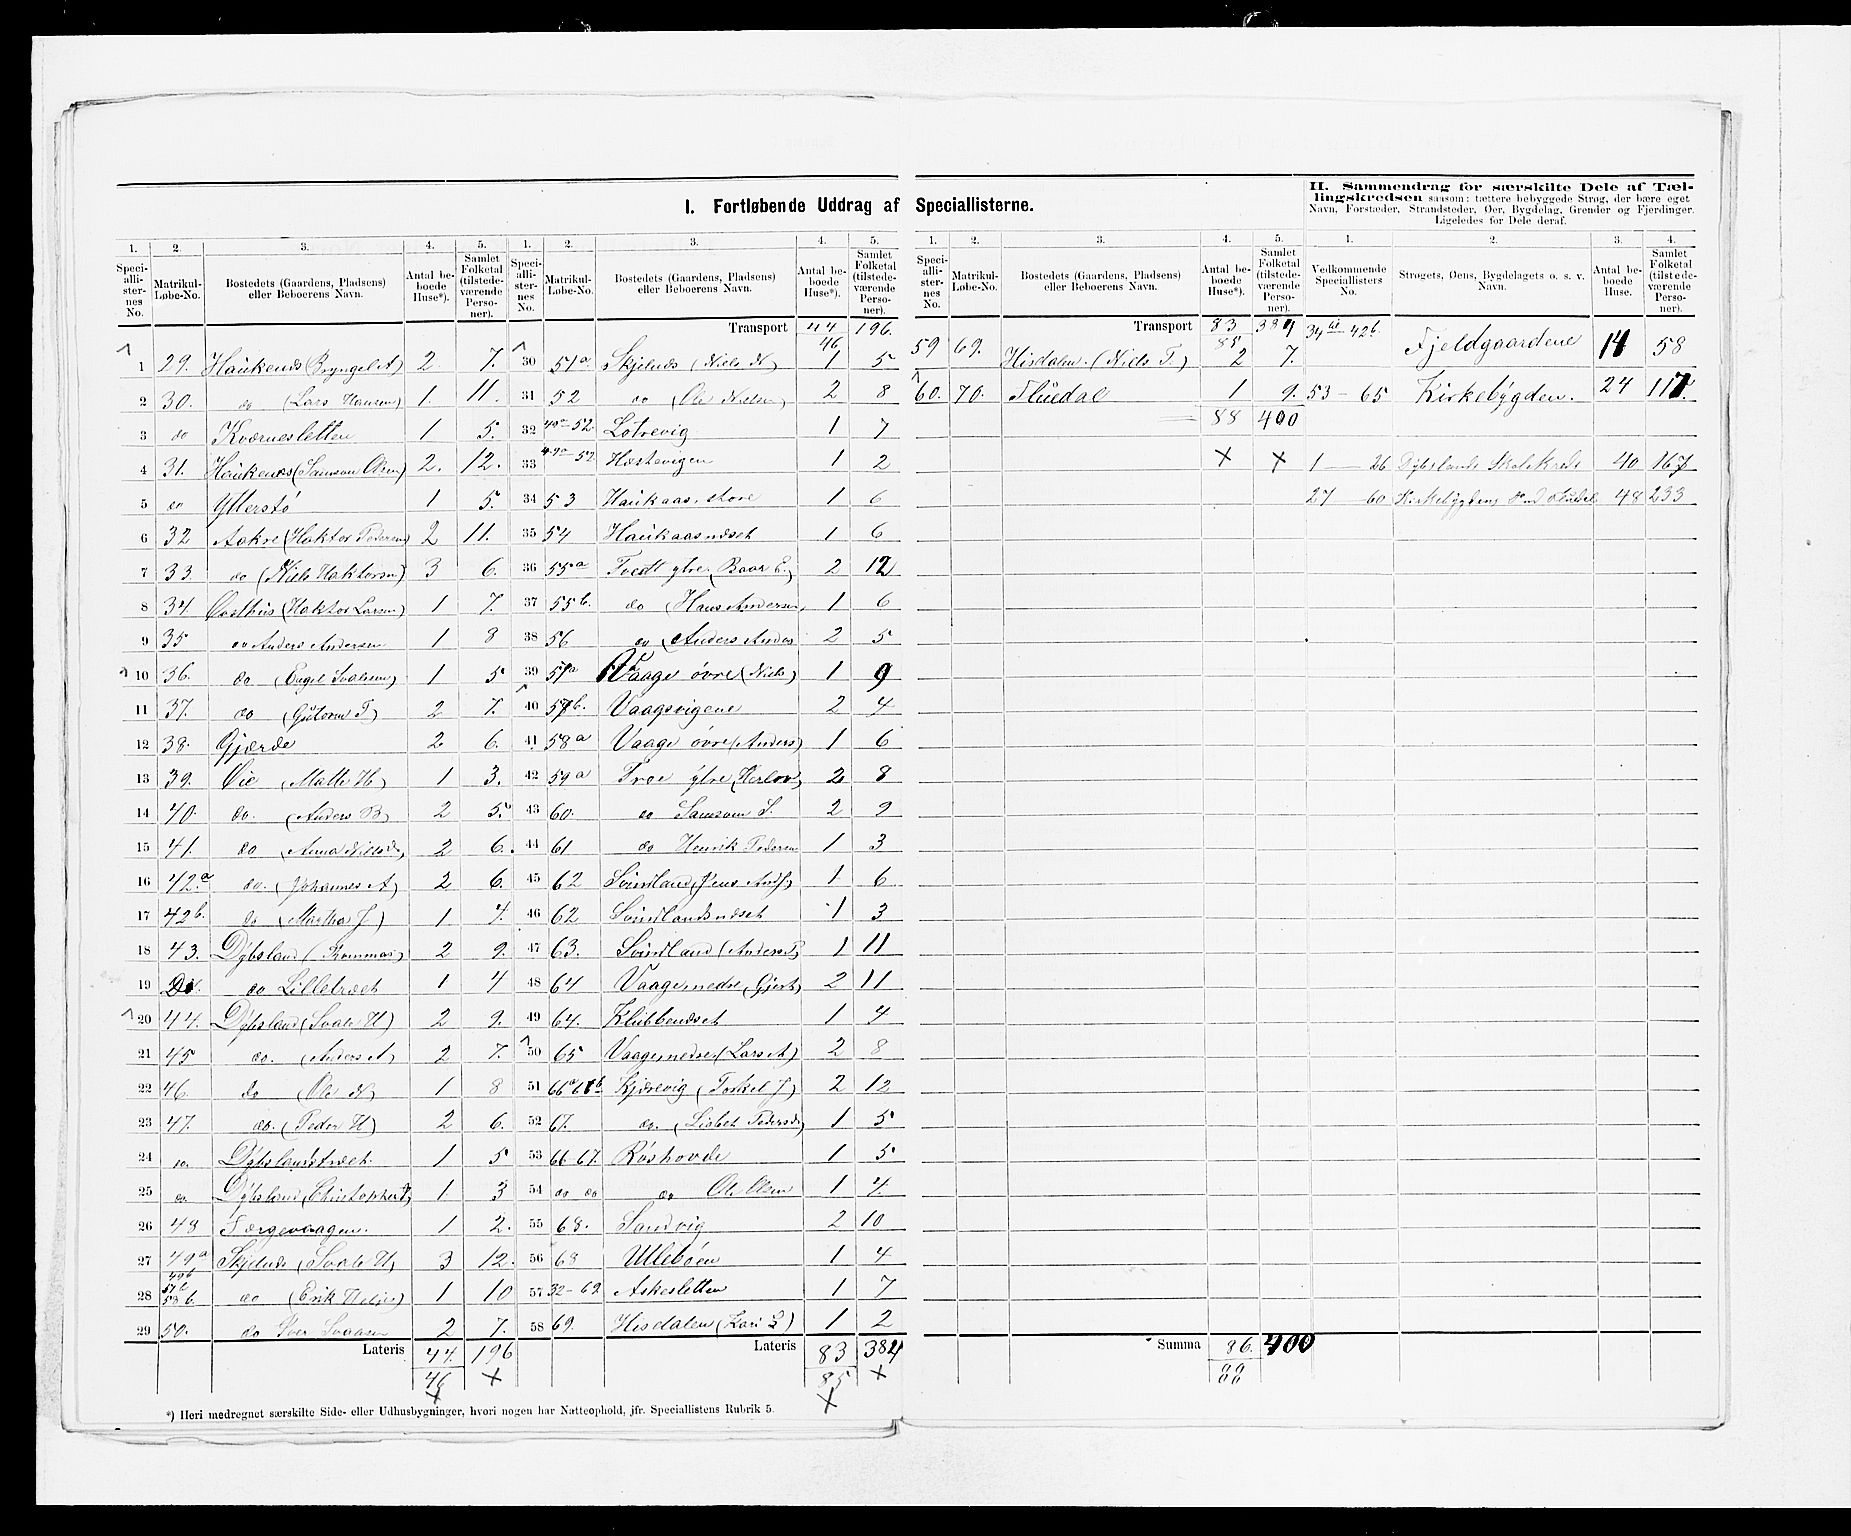 I. Fortløbende Uddrag af Speciallisterne.
II. Sammendrag for særskilte Dele af Tællingskredsen saasom: tættere bebyggede Strøg, der bære eget Navn, Forstæder, Strandsteder, Øer, Bygdelag, Grender og Fjerdinger. Ligeledes for Dele deraf.
1. 2. 3. 4. 5.
Speciallisternes No. Matrikul-Løbe-No. Bostedets (Gaardens, Pladsens) eller Beboerens Navn. Antal beboede Huse*). Samlet Folketal (tilstedeværende Personer).
1 29. Haukenæs (Bryngel A) 2. 7.
2 30. do (Lars Hansen) 1. 11.
3 do Kvernesletten 1 5.
4 31. Haukenæs (Samson Olsen) 2. 12.
5 do Yllerstø 1 5.
6 32 Aakre (Haktor Pedersen) 2 11.
7 33. do (Niels Haktorsen) 3 6.
8 34 (Haktor Larsen) 1 7.
9 35 do Anders Andersen 1 8
10 36. do (Engel) 1 5
11 37. do (Guttorm T) 2 7.
12 38. Gjærde 2 6.
13 39. Øie (Matte H) 1 3.
14 40. do. (Anders B) 2 5.
15 41. do (Anna Nilsd) 2 6.
16 42.a do. (Johannes A) 2 6.
17 42b. do (Martha J) 1 4.
18 43. Dybsland (Thommas) 2 9.
19 do Lilletræet 1 4
20 44. Dybsland (Svale H) 2 9.
21 45 do. (Anders A) 2 7.
22 46. do (Ole N) 1 8
23 47. do. (Peder H) 2 6.
24 do. Dybslandstræet. 1 5
25 do Dybsland (Christopher) 1 3
26 48 Færgevaagen. 1 2.
27 49a Skjelnæs (Svale H) 3 12.
28 49b 51b 53b. do (Erik) 1 10
29 50. do Iver 2 7.
Lateris 44. 196
46
*) Heri medregnet særskilte Side- eller Udhusbygninger, hvori nogen har Natteophold, jfr. Speciallistens Rubrik 5.
1. 2. 3. 4. 5.
Speciallisternes No. Matrikul-Løbe-No. Bostedets (Gaardens, Pladsens) eller Beboerens Navn. Antal beboede Huse*). Samlet Folketal (tilstedeværende Personer).
Transport 44 196.
46
30 51a Skjelnæs (Niels N) 1 5
31 52 do (Ole Nielsen) 2 8
32 49a-52. Lotrevig 1 7
33 49a-52 Hestevigen 1 2
34 53 Haukaas, store 1 6
35 54 Haukaasnæset 1 6
36 55a Tvedt ytre (Baar E.) 2 12
37 55b. do (Hans Andersen) 1 6
38 56 do (Anders Anders) 2 5
39 57a Vaage øvre (Niels) 1 9
40 57b. Vaagsvigene 2 4
41 58a Vaage øvre (Anders) 1 6
42 59a Træ ytre (Herlov) 2 8
43 60. do Samson S. 2 9
44 61 do Henrik Pedersen 1 3
45 62 Svindland (Jens Andr) 1 6
46 62 Svindlandsnæset 1 3
47 63. Svindland (Anders P) 1 11
48 64 Vaage nedre (Gjert) 2 11
49 64. Klubbenæset 1 4
50 65 Vaage nedre (Lars A) 2 8
51 66a 66b Kjærevig (Torkel J) 2 12
52 67. do. (Lisbet Pedersd) 1 5
53 66-67. Røshovde 1 5
54 do do do Ole Olsen 1 4.
55 68. Sandvig 2 10
56 68 Ullebøen 1 4
57 32-62 Askesletten 1 7
58 69. Hisdalen (Kari L) 1 2
Lateris 83 384
85
1. 2. 3. 4. 5.
Speciallisternes No. Matrikul-Løbe-No. Bostedets (Gaardens, Pladsens) eller Beboerens Navn. Antal beboede Huse*). Samlet Folketal (tilstedeværende Personer).
Transport 83 384
85
59 69. Hisdalen. (Niels T.) 2 7.
60. 70. Fluedal 1 9.
88 400
Summa 86. 400
88
1. 2. 3. 4.
Vedkommende Speciallisters No Strøgets, Øens, Bygdelagets o. s. v. Navn. Antal beboede Huse. Samlet Folketal (tilstedeværende Personer).
34 til 42b. Fjeldgaardene 14 58
53 - 65 Kirkebygden. 24 117.
1 - 26 Dybslands Skolekreds 40 167
27 - 60 Kirkebygdens 48 233